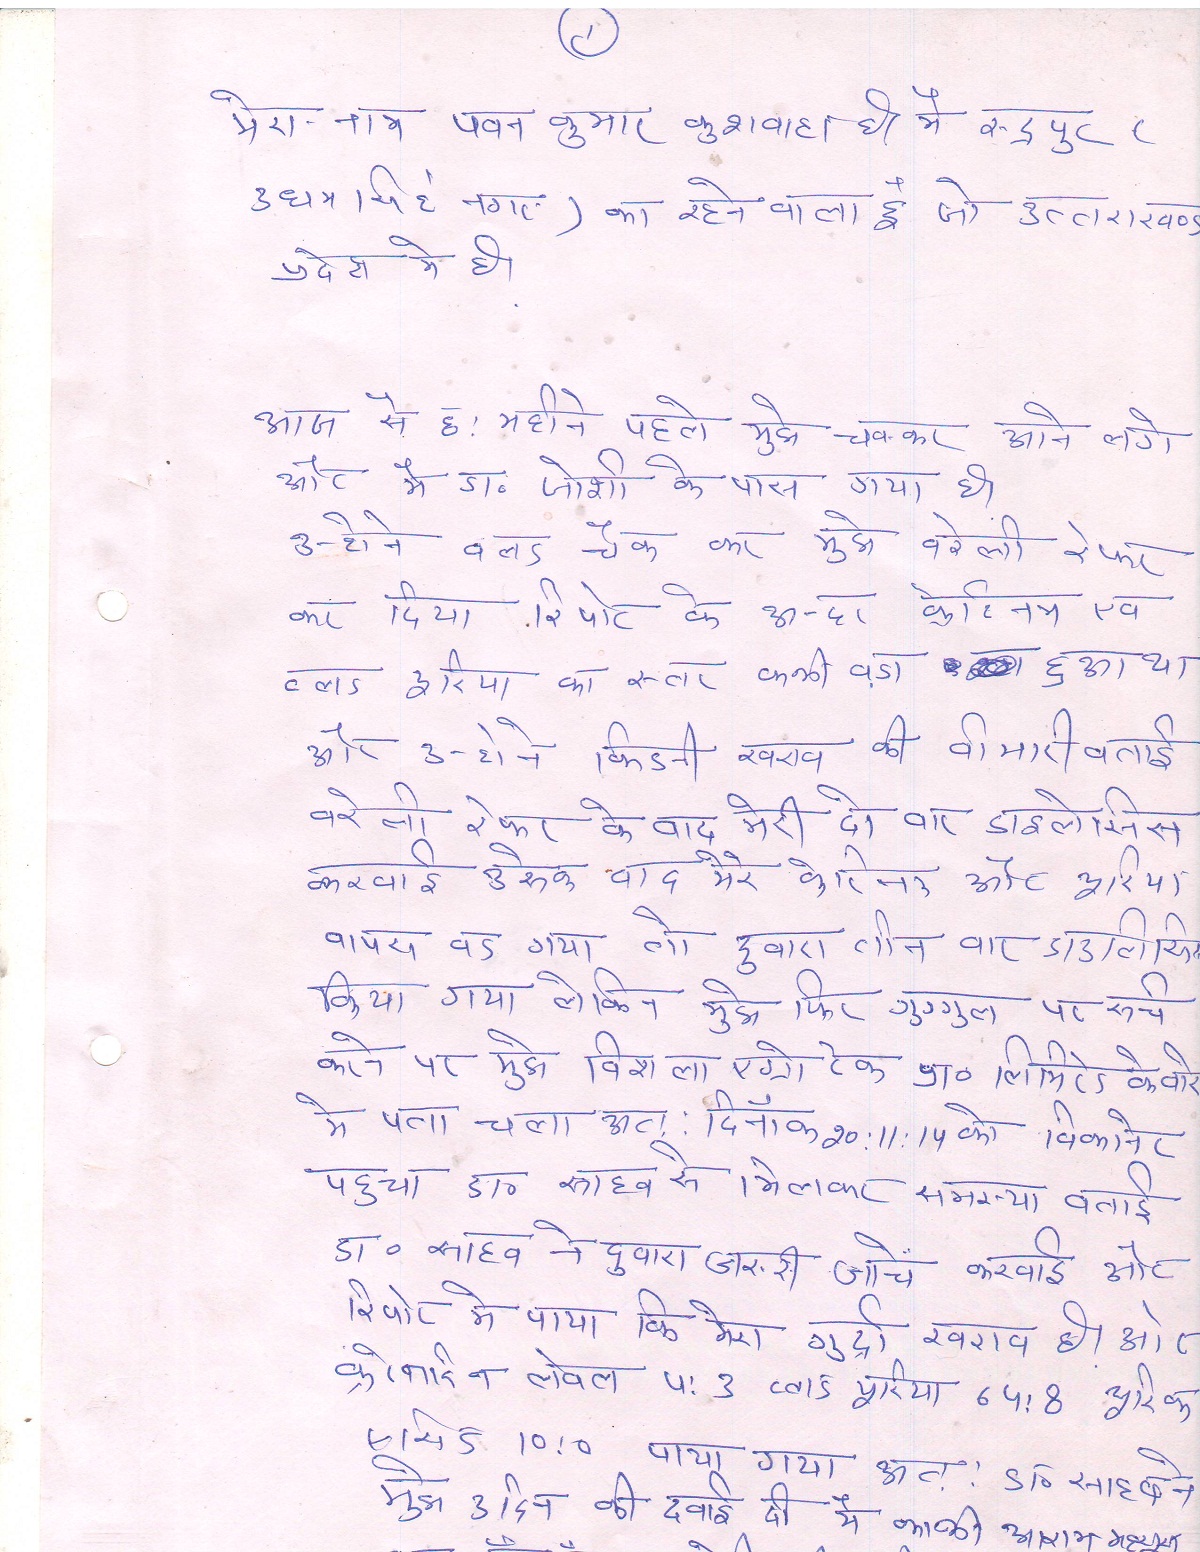 1
मेरा नाम पवन कुमार कुशवाहा है। मै रुद्रपुर (
उधमसिहं नगर) का रहने वाला हूँ जो उत्तराखण्ड
प्रदेश मे है।
आज से छः महीने पहले मुझे चक्कर आने लगे
और मै डा० जोशी के पास गया है।
उन्होने वलड चैक कर मुझे वरेली रेफर
कर दिया रिपोट के अन्दर क्रेटिनन एव
व्लड यूरिया का स्तर काफी वड़ा हुआ था
और उन्होने किडनी खराव की वीमारी वताई
वरेली रेफर के वाद मेरी दो वार डाइलेसिस
करवाई उसके वाद मेरे और यूरिया
वापस वड गया तो दुवारा तीन वार
किया गया लेकिन मुझे फिर गुग्गुल पर सर्च
करने पर मुझे विशला एग्रो टेक प्रा० लिमिटेड के वारे
मे पता चला अतः दिनाँक 20:11:14 को विकानेर
पहुचा डा० साहव से मिलकर समस्या वताई
डा० साहव ने दुवारा जरुरी जाँचें करवाई और
रिपोट मे पाया कि मेरा गुर्दा खराव है। ओर
लेवल 5:3 व्लड यूरिया 64:8 यूरिक
एसिड 10:0 पाया गया अतः डा० साहव ने
मुझे 3 दिन की दवाई दी मै काफी आराम महसूस